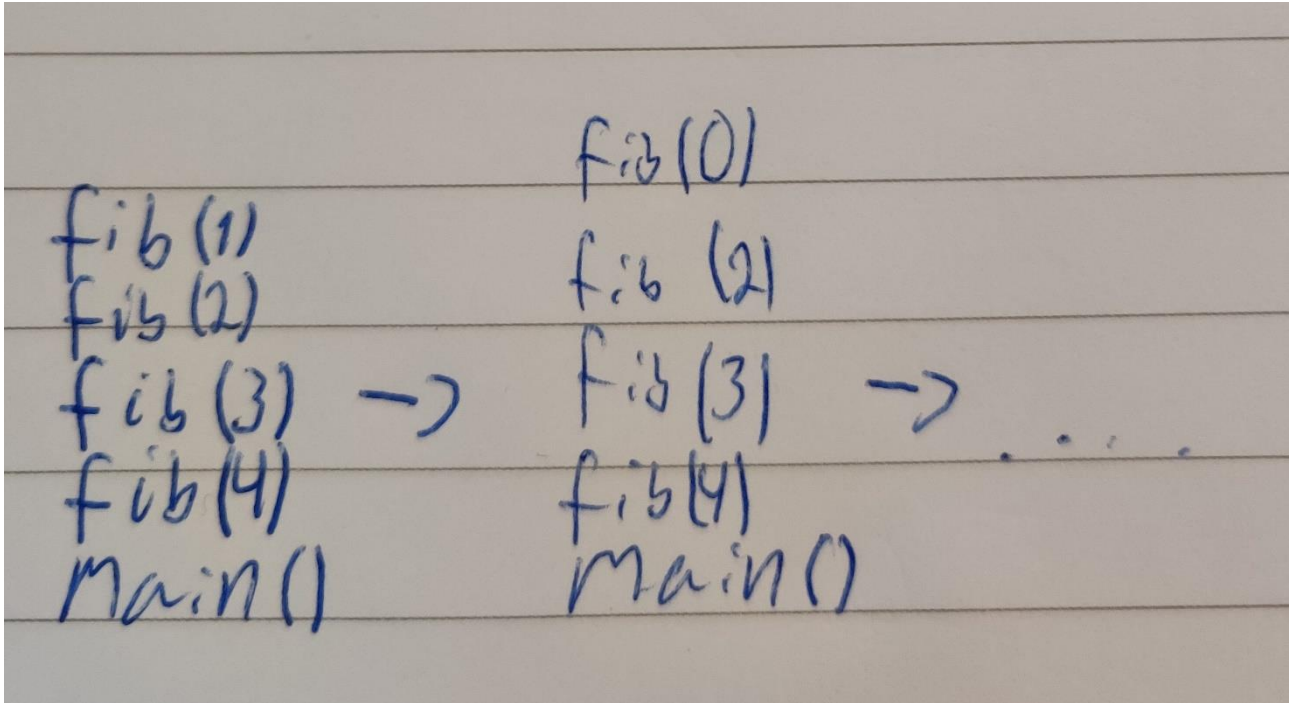 fib(1)
fib(2)
fib(3) ->
fib(4)
main()
fib(0)
fib (2)
fib(3) ->
fib(4)
main()
....